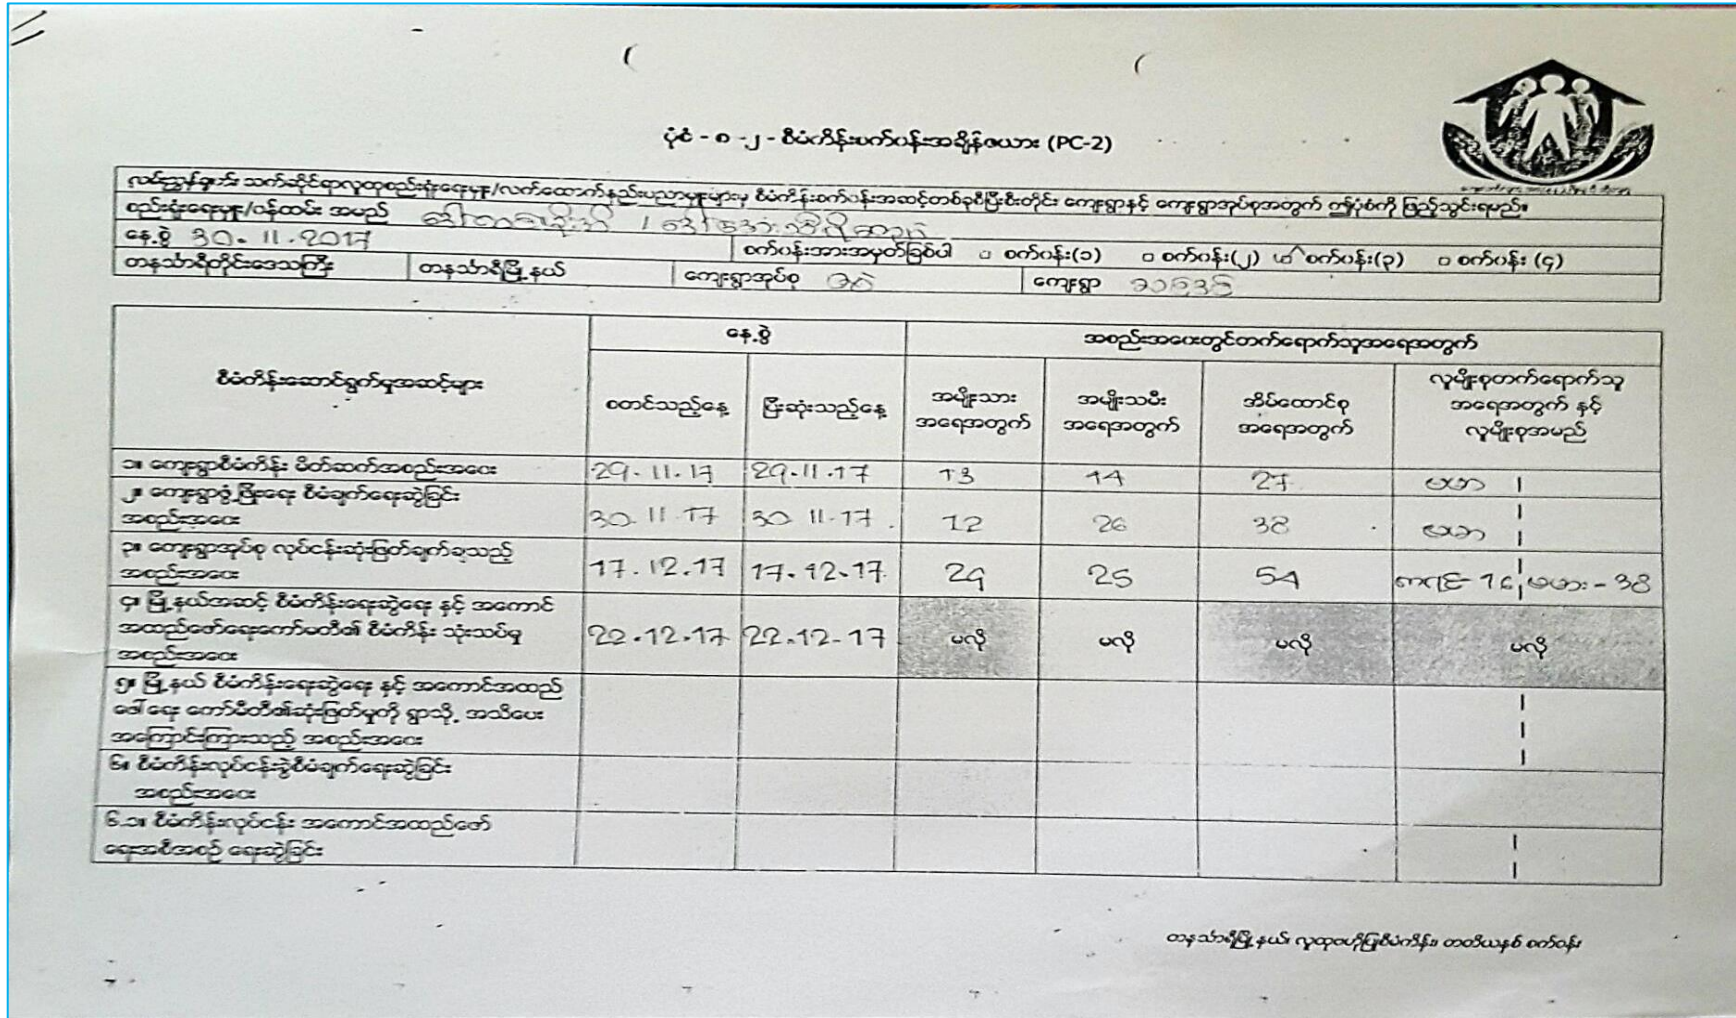 ပုံစံ - ၈ -၂ - စီမံကိန်းစက်ဝန်းအချိန်ဇယား (PC-2)
လမ်းညွှန်ချက်၊ သက်ဆိုင်ရာလူထုစည်းရုံးရေးမှူး/လက်ထောက်နည်းပညာမှူးများမှ စီမံကိန်းစက်ဝန်းအဆင့်တစ်ခုစီပြီးစီးတိုင်း ကျေးရွာနှင့် ကျေးရွာအုပ်စုအတွက် ဤပုံစံကို ဖြည့်သွင်းရမည်။
စည်းရုံးရေးမှူး/ဝန်ထမ်း အမည်
နေ့စွဲ 30.11.2017 စက်ဝန်းအားအမှတ်ခြစ်ပါ □ စက်ဝန်း(၁) □ စက်ဝန်း(၂) စက်ဝန်း(၃) □ စက်ဝန်း (၄)
တနင်္သာရီတိုင်းဒေသကြီး တနင်္သာရီမြို့နယ် ကျေးရွာအုပ်စု ကျေးရွာ
စီမံကိန်းဆောင်ရွက်မှုအဆင့်များ နေ့စွဲ အစည်းအဝေးတွင်တက်ရောက်သူအရေအတွက်
စတင်သည့်နေ့ ပြီးဆုံးသည့်နေ့ အမျိုးသား အရေအတွက် အမျိုးသမီး အရေအတွက် အိမ်ထောင်စု အရေအတွက် လူမျိုးစုတက်ရောက်သူ အရေအတွက် နှင့် လူမျိုးစုအမည်
၁။ ကျေးရွာစီမံကိန်း မိတ်ဆက်အစည်းအဝေး 29.11.17 29.11.17 13 14 27 ဗမာ
၂။ ကျေးရွာဖွံ့ဖြိုးရေး စီမံချက်ရေးဆွဲခြင်း
အစည်းအဝေး 30.11.17 30.11.17. 12 26 38 ဗမာ
၃။ ကျေးရွာအုပ်စု လုပ်ငန်းဆုံးဖြတ်ချက်ချသည့်
အစည်းအဝေး 17.12.17 17.12.17 29 25 54 ကရင်-16, ဗမာ-38
၄။ မြို့နယ်အဆင့် စီမံကိန်းရေးဆွဲရေး နှင့် အကောင်
အထည်ဖော်ရေးကော်မတီ၏ စီမံကိန်း သုံးသပ်မှု
အစည်းအဝေး 22.12.17 22.12-17 မလို မလို မလို မလို
၅။ မြို့နယ် စီမံကိန်းရေးဆွဲရေး နှင့် အကောင်အထည်
ဖေါ်ရေး ကော်မီတီ၏ဆုံးဖြတ်မှုကို ရွာသို့ အသိပေး
အကြောင်းကြားသည့် အစည်းအဝေး
၆။ စီမံကိန်းလုပ်ငန်းခွဲစီမံချက်ရေးဆွဲခြင်း
အစည်းအဝေး
၆.၁။ စီမံကိန်းလုပ်ငန်း အကောင်အထည်ဖော်
ရေးအစီအစဉ် ရေးဆွဲခြင်း
တနင်္သာရီမြို့နယ်၊ လူထုဗဟိုပြုစီမံကိန်း၊ တတိယနှစ် စက်ဝန်း